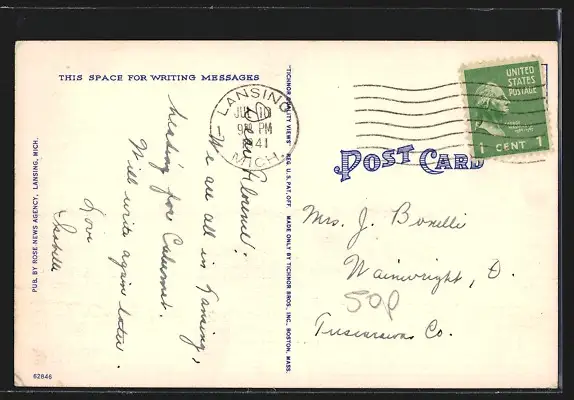 THIS SPACE FOR WRITING MESSAGES
Dear Florence:
We are all in Lansing,
heading for Calumet.
Will write again later.
Love
Isabelle
PUB. BY ROSE NEWS AGENCY, LANSING, MICH.
62846
"TICHNOR QUALITY VIEWS" REG. U.S. PAT. OFF. MADE ONLY BY TICHNOR BROS., INC., BOSTON, MASS.
LANSING
10
9 PM
41
MICH.
UNITED
STATES
POSTAGE
1 CENT 1
POST CARD
Mrs. J. Bonelli
Wainwright, O.
50p
Tuscarawas Co.